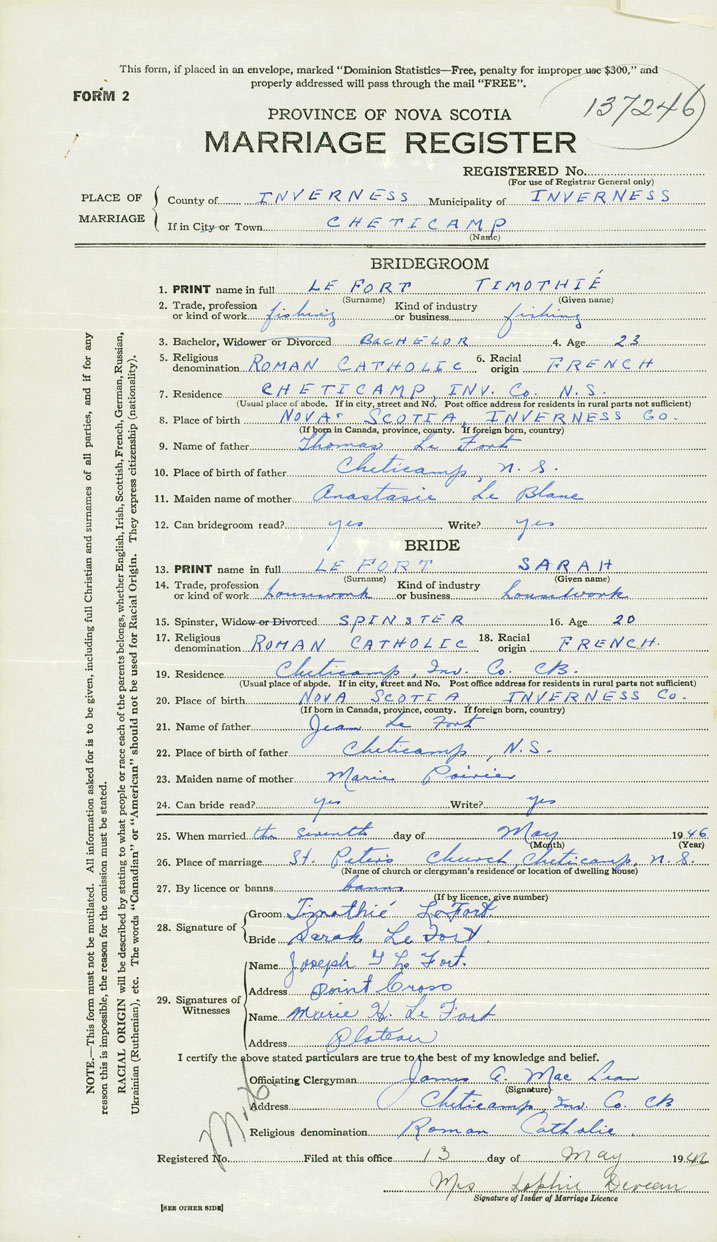 This form, if placed in an envelope, marked "Dominion Statistics—Free, penalty for improper use $300," and
properly addressed will pass through the mail "FREE".
FORM 2
137246
PROVINCE OF NOVA SCOTIA
MARRIAGE REGISTER
REGISTERED No.
(For use of Registrar General only)
PLACE OF MARRIAGE
County of INVERNESS Municipality of INVERNESS
If in City or Town CHETICAMP
(Name)
BRIDEGROOM
1. PRINT name in full LE FORT TIMOTHIÉ
(Surname) (Given name)
2. Trade, profession or kind of work fishing Kind of industry or business fishing
3. Bachelor, Widower or Divorced BACHELOR 4. Age 23
5. Religious denomination ROMAN CATHOLIC 6. Racial origin FRENCH
7. Residence CHETICAMP, INV. Co. N.S.
(Usual place of abode. If in city, street and No. Post office address for residents in rural parts not sufficient)
8. Place of birth NOVA SCOTIA, INVERNESS CO.
(If born in Canada, province, county. If foreign born, country)
9. Name of father Thomas Le Fort
10. Place of birth of father Cheticamp, N. S.
11. Maiden name of mother Anastasie Le Blanc
12. Can bridegroom read? yes Write? yes
BRIDE
13. PRINT name in full LE FORT SARAH
(Surname) (Given name)
14. Trade, profession or kind of work housework Kind of industry or business housework
15. Spinster, Widow or Divorced SPINSTER 16. Age 20
17. Religious denomination ROMAN CATHOLIC 18. Racial origin FRENCH.
19. Residence Cheticamp, Inv. Co. CB.
(Usual place of abode. If in city, street and No. Post office address for residents in rural parts not sufficient)
20. Place of birth NOVA SCOTIA INVERNESS Co.
(If born in Canada, province, county. If foreign born, country)
21. Name of father Jean Le Fort
22. Place of birth of father Cheticamp, N.S.
23. Maiden name of mother Marie Poirier
24. Can bride read? yes Write? yes
25. When married the seventh day of May 1946
(Month) (Year)
26. Place of marriage St. Peter's Church, Cheticamp, N. S.
(Name of church or clergyman's residence or location of dwelling house)
27. By licence or banns banns
(If by licence, give number)
28. Signature of
Groom Timothié LeFort
Bride Sarah Le Fort.
29. Signatures of Witnesses
Name Joseph Le Fort.
Address Point Cross
Name Marie H. Le Fort
Address Plateau
I certify the above stated particulars are true to the best of my knowledge and belief.
Officiating Clergyman James A. Mac Lean
(Signature)
Address Cheticamp Inv. Co. CB
Religious denomination Roman Catholic.
Registered No. Filed at this office 13 day of May 1946
Mrs Sophie
Signature of Issuer of Marriage Licence
[SEE OTHER SIDE]
NOTE.—This form must not be mutilated. All information asked for is to be given, including full Christian and surnames of all parties, and if for any
reason this is impossible, the reason for the omission must be stated.
RACIAL ORIGIN will be described by stating to what people or race each of the parents belongs, whether English, Irish, Scottish, French, German, Russian,
Ukrainian (Ruthenian), etc. The words "Canadian" or "American" should not be used for Racial Origin. They express citizenship (nationality).